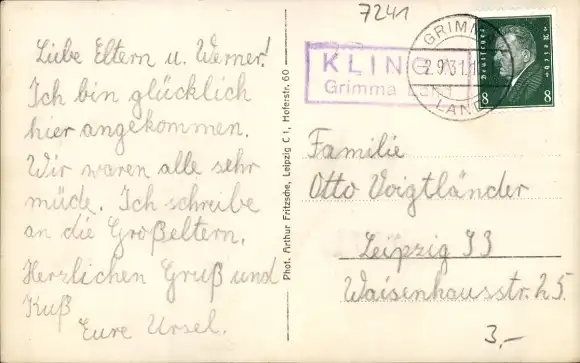 7241
Liebe Eltern u. Werner!
Ich bin glücklich
hier angekommen.
Wir waren alle sehr
müde. Ich schreibe
an die Großeltern.
Herzlichen Gruß und
Kuß
Eure Ursel.
Phot. Arthur Fritzsche, Leipzig C 1, Hoferstr. 60
KLING
Grimma Land
GRIMM
2.9.31.
LAND
Deutsches Reich
8 8
Familie
Otto Voigtländer
Leipzig
Waisenhausstr. 25
3,-